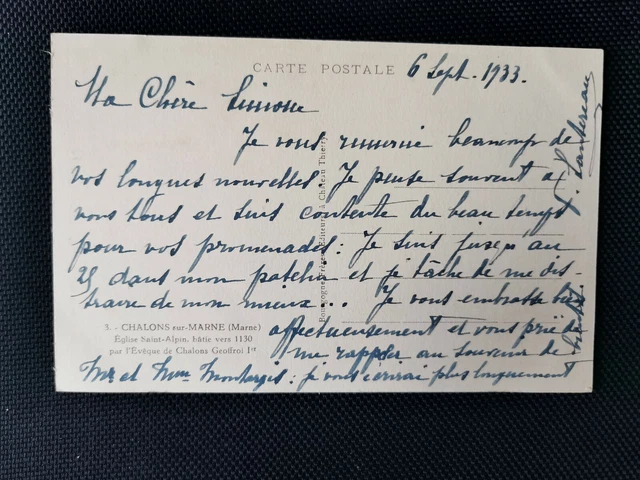 CARTE POSTALE 6 Sept. 1933.
Ma Chère Simone
Je vous remercie beaucoup de
vos longues nouvelles. Je pense souvent à
vous tous et suis contente du beau temps
pour vos promenades : Je suis jusqu'au
25 dans mon patelin et je tâche de me dis-
traire de mon mieux... Je vous embrasse bien
affectueusement et vous prie de
me rappeler au souvenir de
Mr et Mme Montargis : je vous écrirai plus longuement
bientôt.
3. - CHALONS sur-MARNE (Marne)
Église Saint-Alpin, bâtie vers 1130
par l'Évêque de Chalons Geoffroi Ier
Frères, Éditeurs à Château Thierry